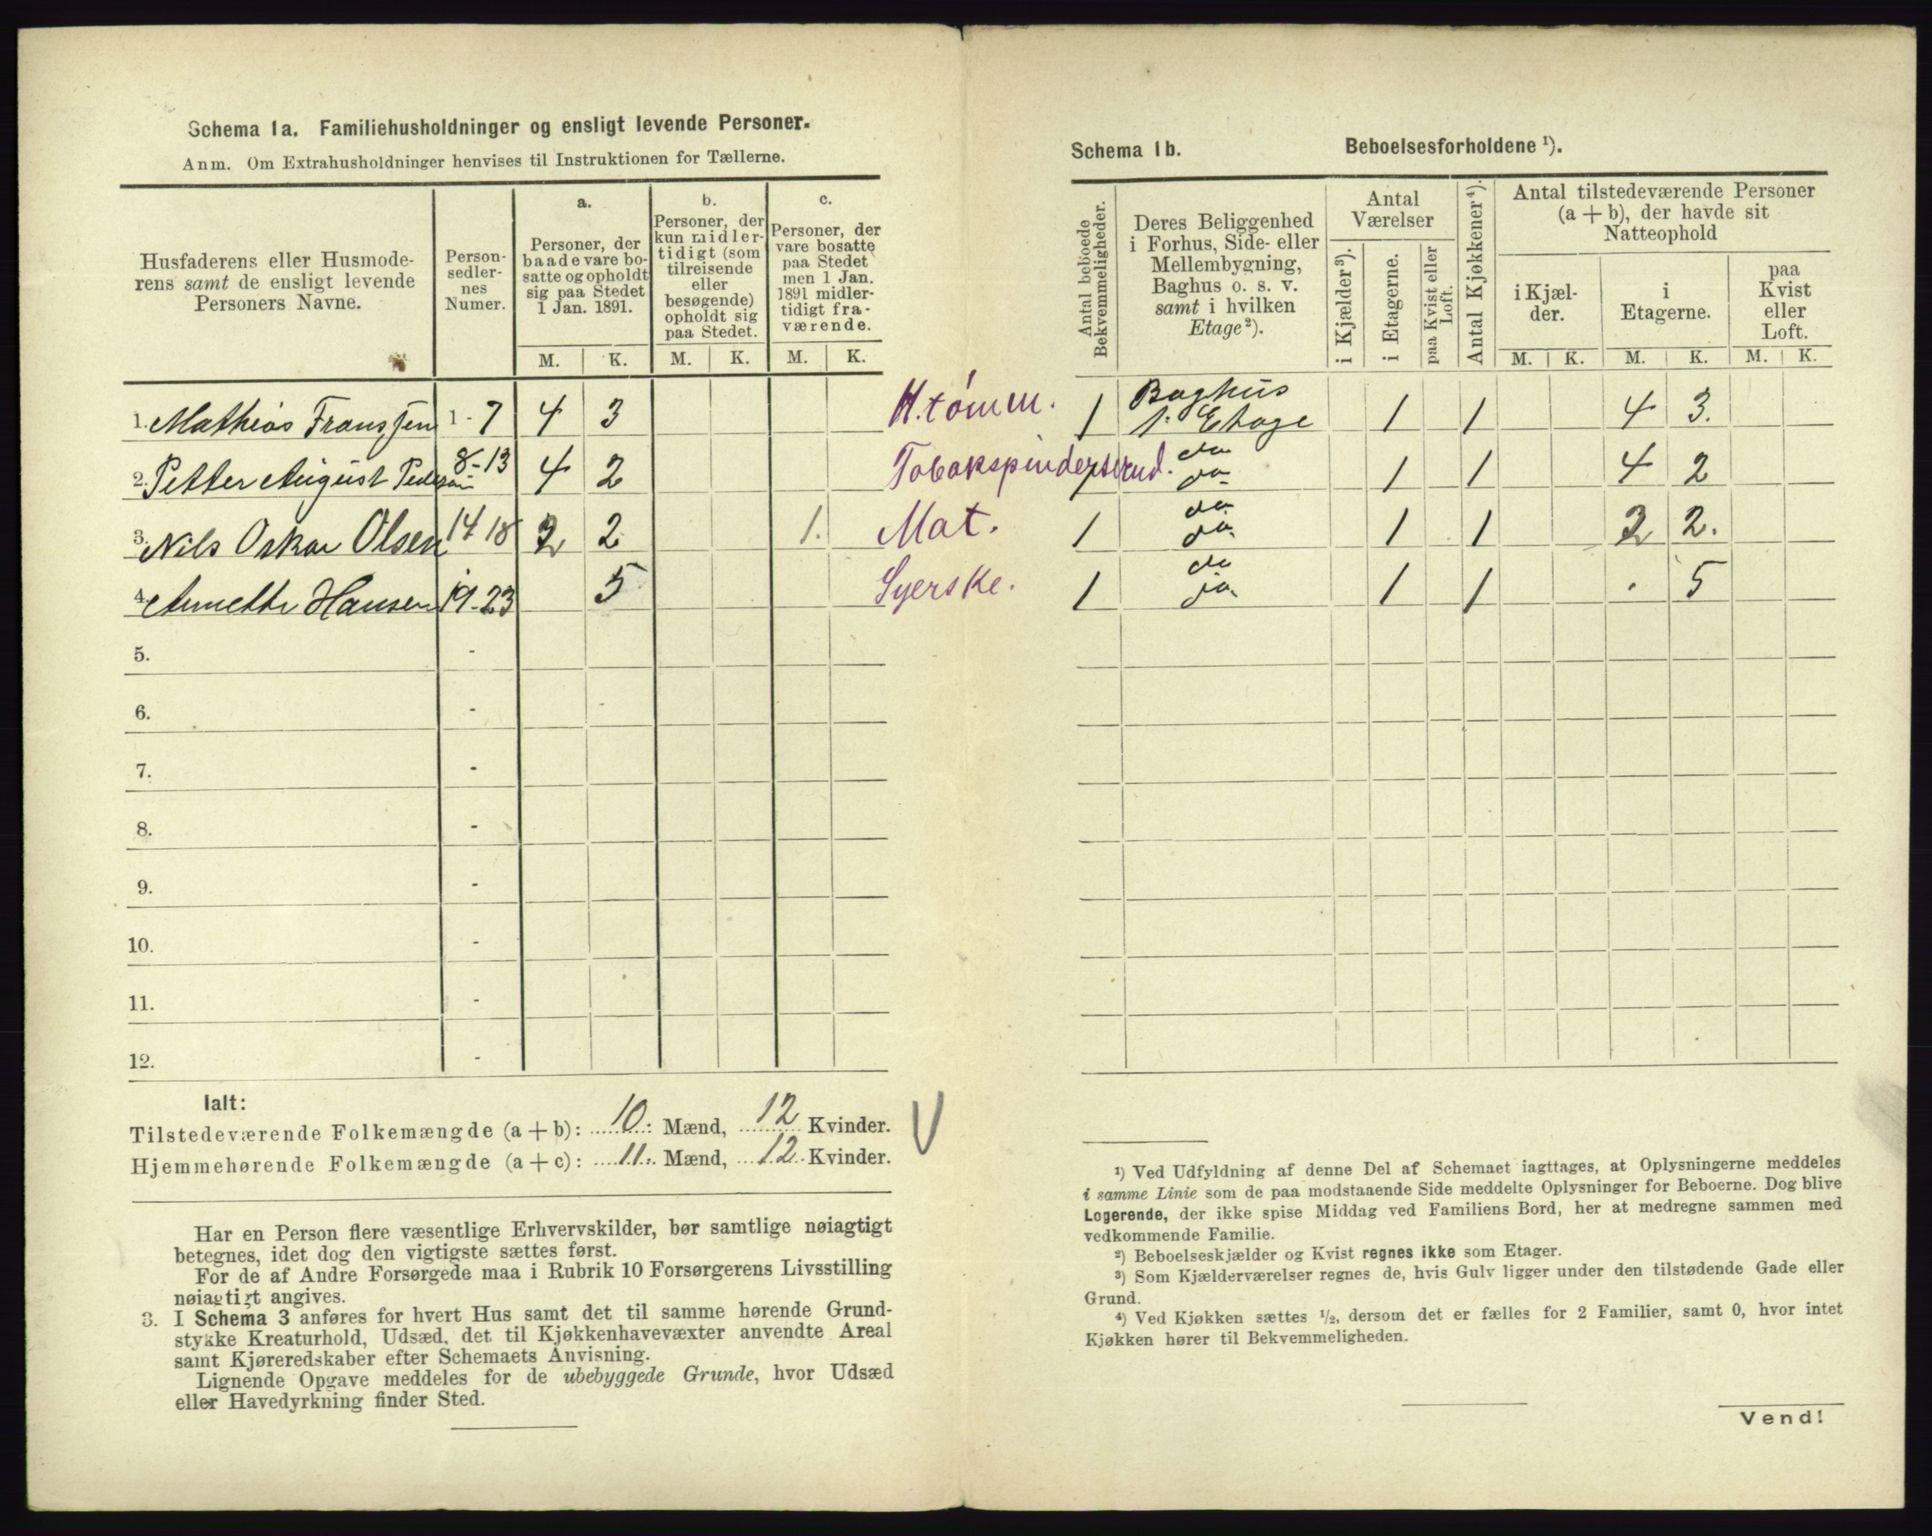 Schema 1a. Familiehusholdninger og ensligt levende Personer.
Anm. Om Extrahusholdninger henvises til Instruktionen for Tællerne.
Husfaderens eller Husmode-
rens samt de ensligt levende
Personers Navne.
Person-
sedler-
nes
Numer.
a.
Personer, der
baade vare bo-
satte og opholdt
sig paa Stedet
1 Jan. 1891.
b.
Personer, der
kun midler-
tidigt (som
tilreisende
eller
besøgende)
opholdt sig
paa Stedet.
c.
Personer, der
vare bosatte
paa Stedet
men 1 Jan.
1891 midler-
tidigt fra-
værende.
M. K. M. K. M. K.
1. Mathias Franssen 1-7 4 3
2. Petter August Pedersen 8-13 4 2
3. Nils Oskar Olsen 14 18 2 2 1.
4. Annette Hansen 19-23 5
5. -
6. -
7. -
8. -
9. -
10. -
11. -
12. -
Ialt:
Tilstedeværende Folkemængde (a+b): 10 Mænd, 12 Kvinder.
Hjemmehørende Folkemængde (a+c): 11 Mænd, 12 Kvinder.
Har en Person flere væsentlige Erhvervskilder, bør samtlige nøiagtigt
betegnes, idet dog den vigtigste sættes først.
For de af Andre Forsørgede maa i Rubrik 10 Forsørgerens Livsstilling
nøiagtigt angives.
3. I Schema 3 anføres for hvert Hus samt det til samme hørende Grund-
stykke Kreaturhold, Udsæd, det til Kjøkkenhavevæxter anvendte Areal
samt Kjøreredskaber efter Schemaets Anvisning.
Lignende Opgave meddeles for de ubebyggede Grunde, hvor Udsæd
eller Havedyrkning finder Sted.
Schema 1b. Beboelsesforholdene ¹).
Antal beboede
Bekvemmeligheder.
Deres Beliggenhed
i Forhus, Side- eller
Mellembygning,
Baghus o. s. v.
samt i hvilken
Etage ²).
Antal
Værelser
i Kjælder ³).
i Etagerne.
paa Kvist eller
Loft.
Antal Kjøkkener ⁴).
Antal tilstedeværende Personer
(a + b), der havde sit
Natteophold
i Kjæl-
der.
i
Etagerne.
paa
Kvist
eller
Loft.
M. K. M. K. M. K.
H.tømm. 1 Baghus
1. Etage 1 1 4 3.
Tobakspinderserud. 1 do
do 1 1 4 2
Mat. 1 do
do. 1 1 2 2.
Syerske. 1 do
do. 1 1 . 5
¹) Ved Udfyldning af denne Del af Schemaet iagttages, at Oplysningerne meddeles
i samme Linie som de paa modstaaende Side meddelte Oplysninger for Beboerne. Dog blive
Logerende, der ikke spise Middag ved Familiens Bord, her at medregne sammen med
vedkommende Familie.
²) Beboelseskjælder og Kvist regnes ikke som Etager.
³) Som Kjælderværelser regnes de, hvis Gulv ligger under den tilstødende Gade eller
Grund.
⁴) Ved Kjøkken sættes ½, dersom det er fælles for 2 Familier, samt 0, hvor intet
Kjøkken hører til Bekvemmeligheden.
Vend!